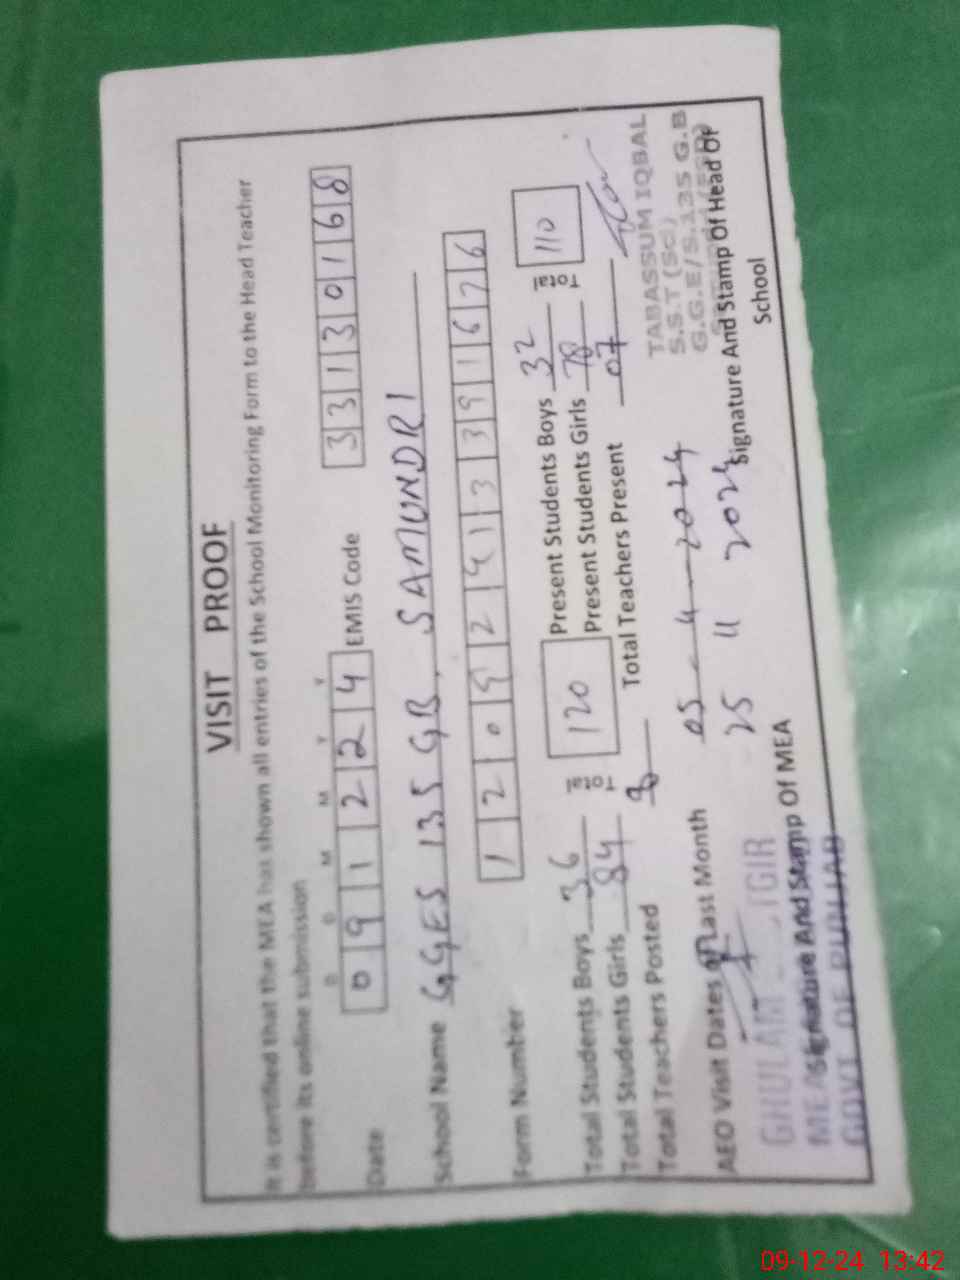 VISIT PROOF
It is certified that the MEA has shown all entries of the School Monitoring Form to the Head Teacher
before its online submission
D D M M Y Y
Date 0 9 1 2 2 4 EMIS Code 3 3 1 3 0 1 6 8
School Name GGES 135 GB, SAMUNDRI
Form Number 1 2 0 9 2 4 1 3 3 9 1 6 7 6
Total Students Boys 36 Total 120 Present Students Boys 32 Total 110
Total Students Girls 84 Present Students Girls 78
Total Teachers Posted 8 Total Teachers Present 07
AEO Visit Dates of Last Month 05 - 11 - 2024
25 11 2024
TABASSUM IQBAL
S.S.T (Sc)
G.G.E/S.135 G.B
GHULAM
MEA
GOVT. OF PUNJAB
Signature And Stamp Of MEA
Signature And Stamp Of Head Of
School
09-12-24 13:42